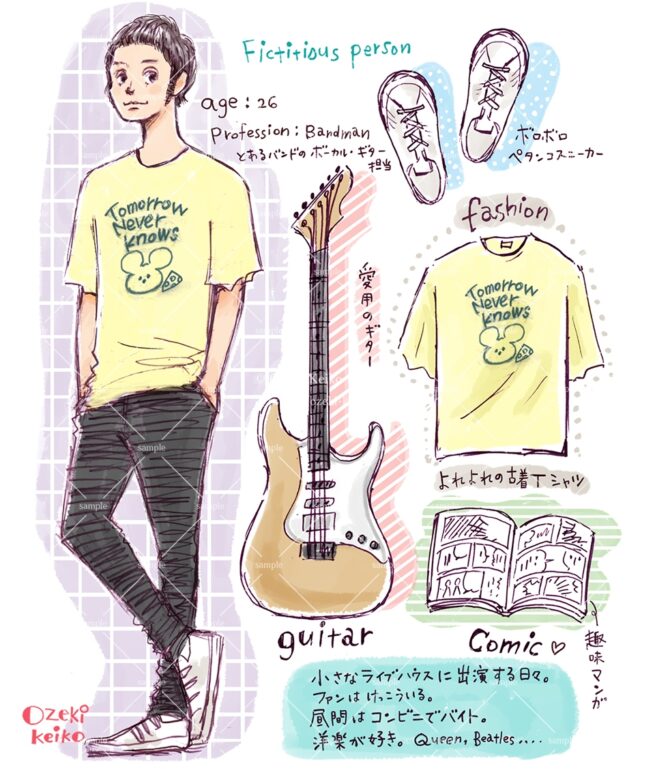 Fictitious person
age : 26
Profession : Bandman
とあるバンドのボーカル・ギター
担当
ボロボロ
ペタンコスニーカー
fashion
Tomorrow
Never
knows
Tomorrow
Never
knows
愛用のギター
よれよれの古着Tシャツ
guitar
Comic♡
趣味マンガ
小さなライブハウスに出演する日々。
ファンはけっこういる。
昼間はコンビニでバイト。
洋楽が好き。Queen, Beatles....
Ozeki
keiko
sample
sample
sample
sample
sample